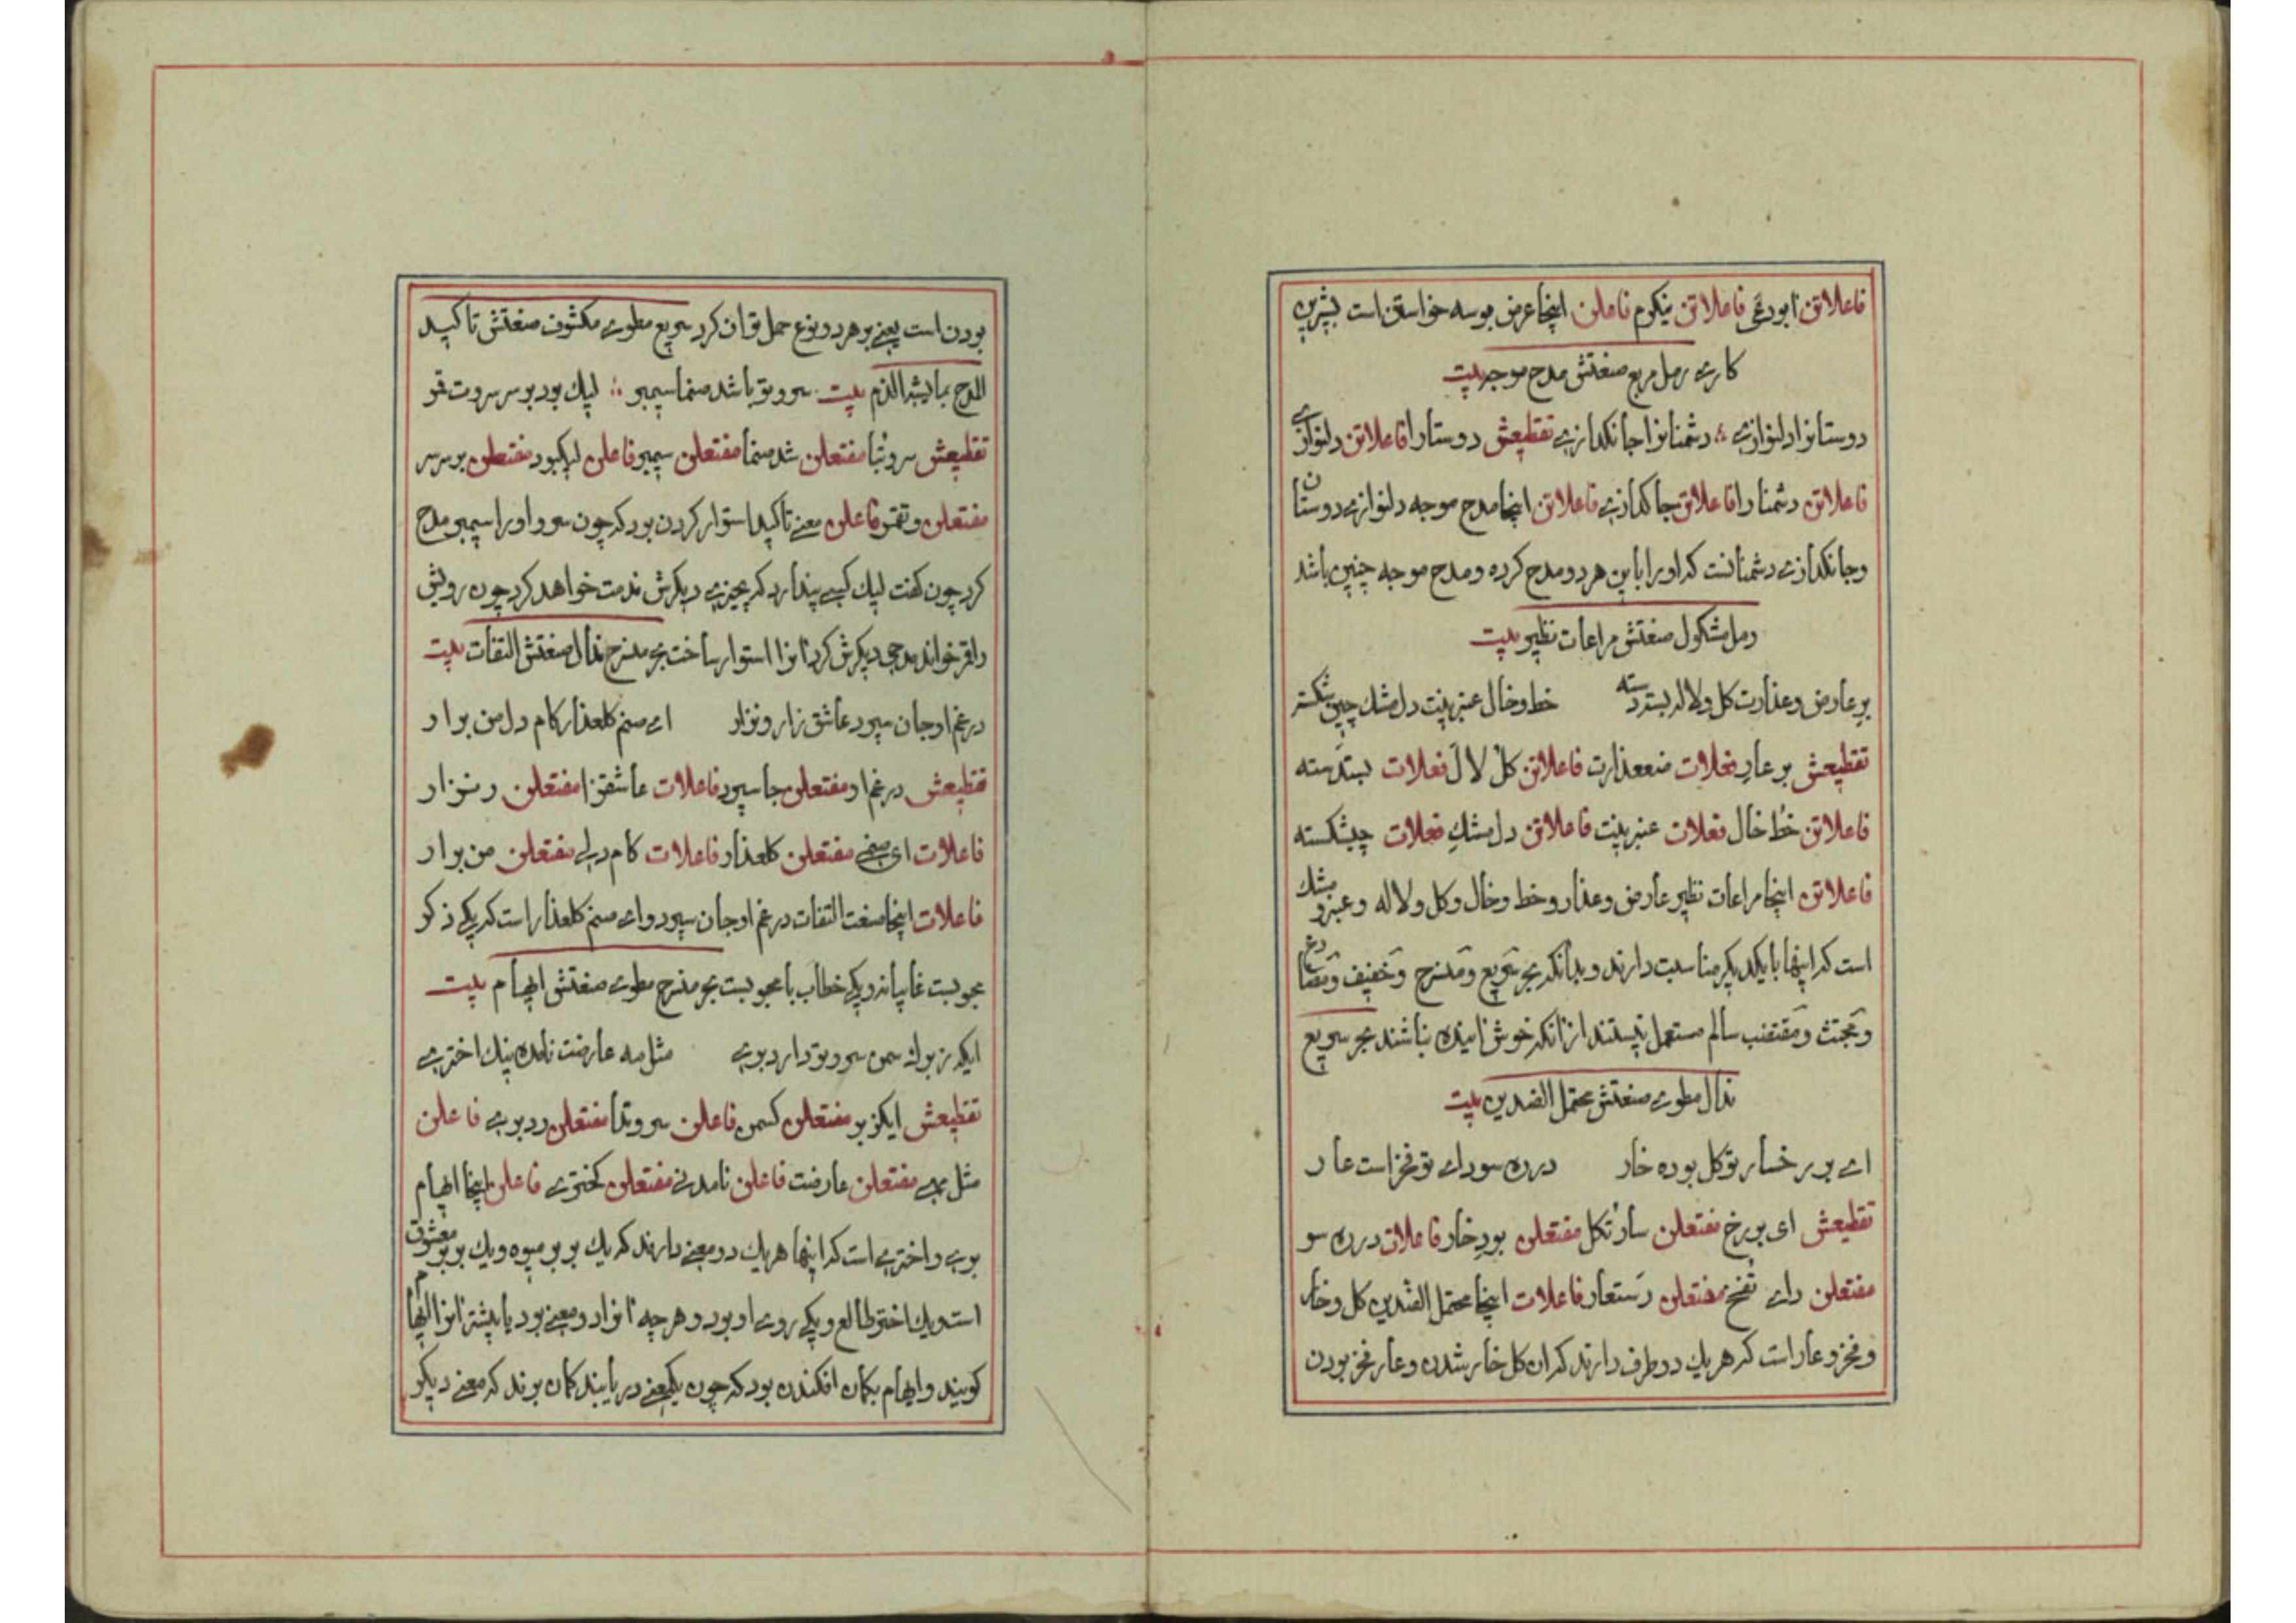 فاعلاتن ابودغی فاعلاتن نیکوم فاعلن اینجا عرض بوسه خواستن است بشیرین
کاری رمل مربع صنعتش مدح موجه بیت
دوستانرا دلنوازی ؞ دشمنانرا جانگدازی تقطیعش دوستارا فاعلاتن دلنوازی
فاعلاتن دشمنارا فاعلاتن جاگدازی فاعلاتن اینجا مدح موجه دلنوازی دوستان
وجانگدازی دشمنانست که اورا باین هردو مدح کرده ومدح موجه چنین باشد
رمل مشکول صنعتش مراعات نظیر بیت
بر عارض وعذارت کل ولاله بسته دسته خط وخال عنبرینت دل مشک چین شکسته
تقطیعش بر عارِ فعلات ضعذارت فاعلاتن کل لالَ فعلات بستدسته
فاعلاتن خط خال فعلات عنبرینت فاعلاتن دل مشکِ فعلات چیشکسته
فاعلاتن اینجا مراعات نظیر عارض وعذار وخط وخال وکل ولاله وعنبر ومشک
است که اینها بایکدیکر مناسبت دارند وبدانکه بحر سریع ومنسرح وخفیف ومضارع
ومجتث ومقتضب سالم مستعمل نیستند ازانکه خوش آینده نباشند بحر سریع
مذال مطوی صنعتش محتمل الضدین بیت
ای بر رخسار تو کل بوده خار دره سودای تو فخر است عار
تقطیعش ای بر رخ مفتعلن سارتکل مفتعلن بودِ خار فاعلات دره سو
مفتعلن دای تفخ مفتعلن رستعار فاعلات اینجا محتمل الضدین کل وخار
وفخر وعار است که هریک دو طرف دارند که ان کل خار شدن وعار فخر بودن
بودن است یعنی بر هردو نوع حمل توان کرد سریع مطوی مکشوف صنعتش تاکید
المدح بما یشبه الذم بیت سرو تو باشد صنما سیمبر ؞ لیک بود بر سر سروت قمر
تقطیعش سروتبا مفتعلن شد صنما مفتعلن سیمبر فاعلن لیکبود مفتعلن بر سر سر
مفتعلن وتقمر فاعلن معنی تاکید استوار کردن بود که چون سرو اورا سیمبر مدح
کرد چون کفت لیک کسی پندارد که بچیزی دیکرش ندمت خواهد کرد چون رویش
راقمر خواند مدحی دیکرش کرد آنرا استوار ساخت بحر منسرح مذال صنعتش التفات بیت
در غم او جان سپرد عاشق زار ونزار ای صنم کلعذار کام دل من برار
تقطیعش در غم او مفتعلن جا سپرد فاعلات عاشقزا مفتعلن رنزار
فاعلات ای صنمی مفتعلن کلعذار فاعلات کام دلی مفتعلن من برار
فاعلات اینجا صنعت التفات در غم او جان سپرد وای صنم کلعذار است که یکی ذکر
محبوبست غایبانه ویکی خطاب با محبوبست بحر منسرح مطوی صنعتش ایهام بیت
ایکه ز بوک سمن سرو تو دارد بوی مثل مه عارضت نامده نیک اختری
تقطیعش ایکزبو مفتعلن کسمن فاعلن سرو تدا مفتعلن ردبوی فاعلن
مثل مهی مفتعلن عارضت فاعلن نامدنی مفتعلن کختری فاعلن اینجا ایهام
بوی واختری است که اینها هریک دو معنی دارند که یک بو بر میوه ویک بو بر معشوق
است ویک اختر طالع ویکی روی او بود وهرچه آنرا دو معنی بود یا بیشتر آنرا ایهام
کویند وایهام بکمان افکندن بود که چون یکمعنی دریابند کمان برند که معنی دیکر